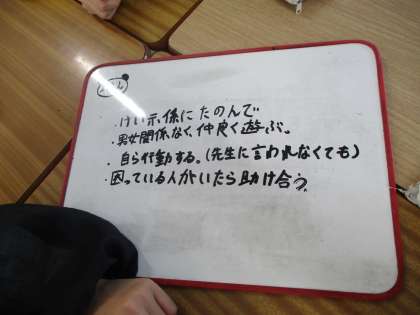 ・けい示係にたのんで
・男女関係なく、仲良く遊ぶ。
・自ら行動する。(先生に言われなくても)
・困っている人がいたら助け合う。